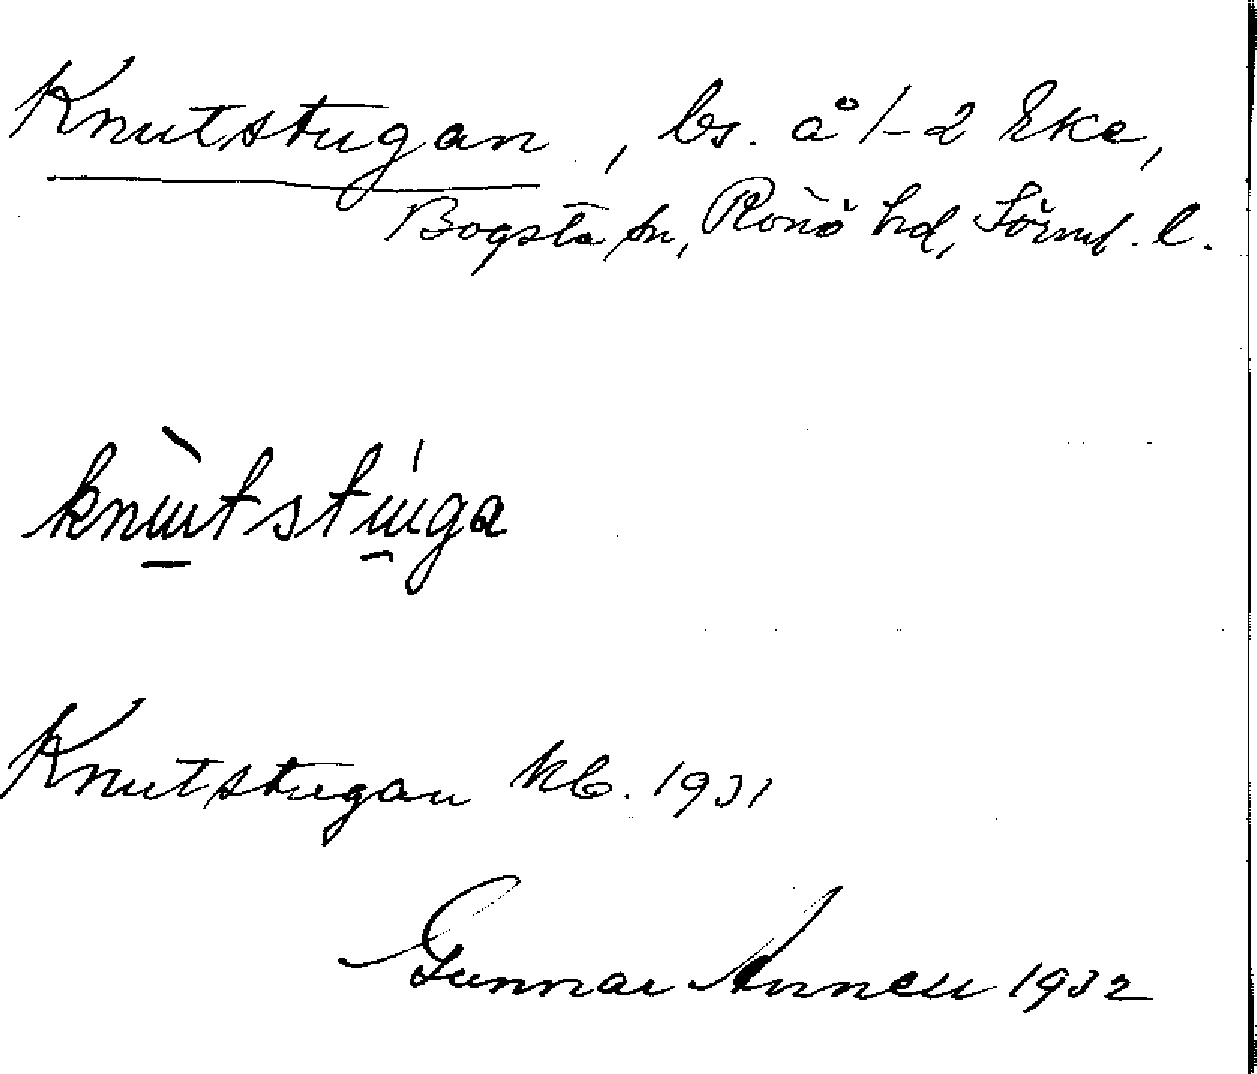 Knutstugan, bs. å 1-2 Eke,
Bogsta sn, Rönö hd, Sörml. l.
knùtstúga
Knutstugan kb. 1931
Gunnar Annell 1932